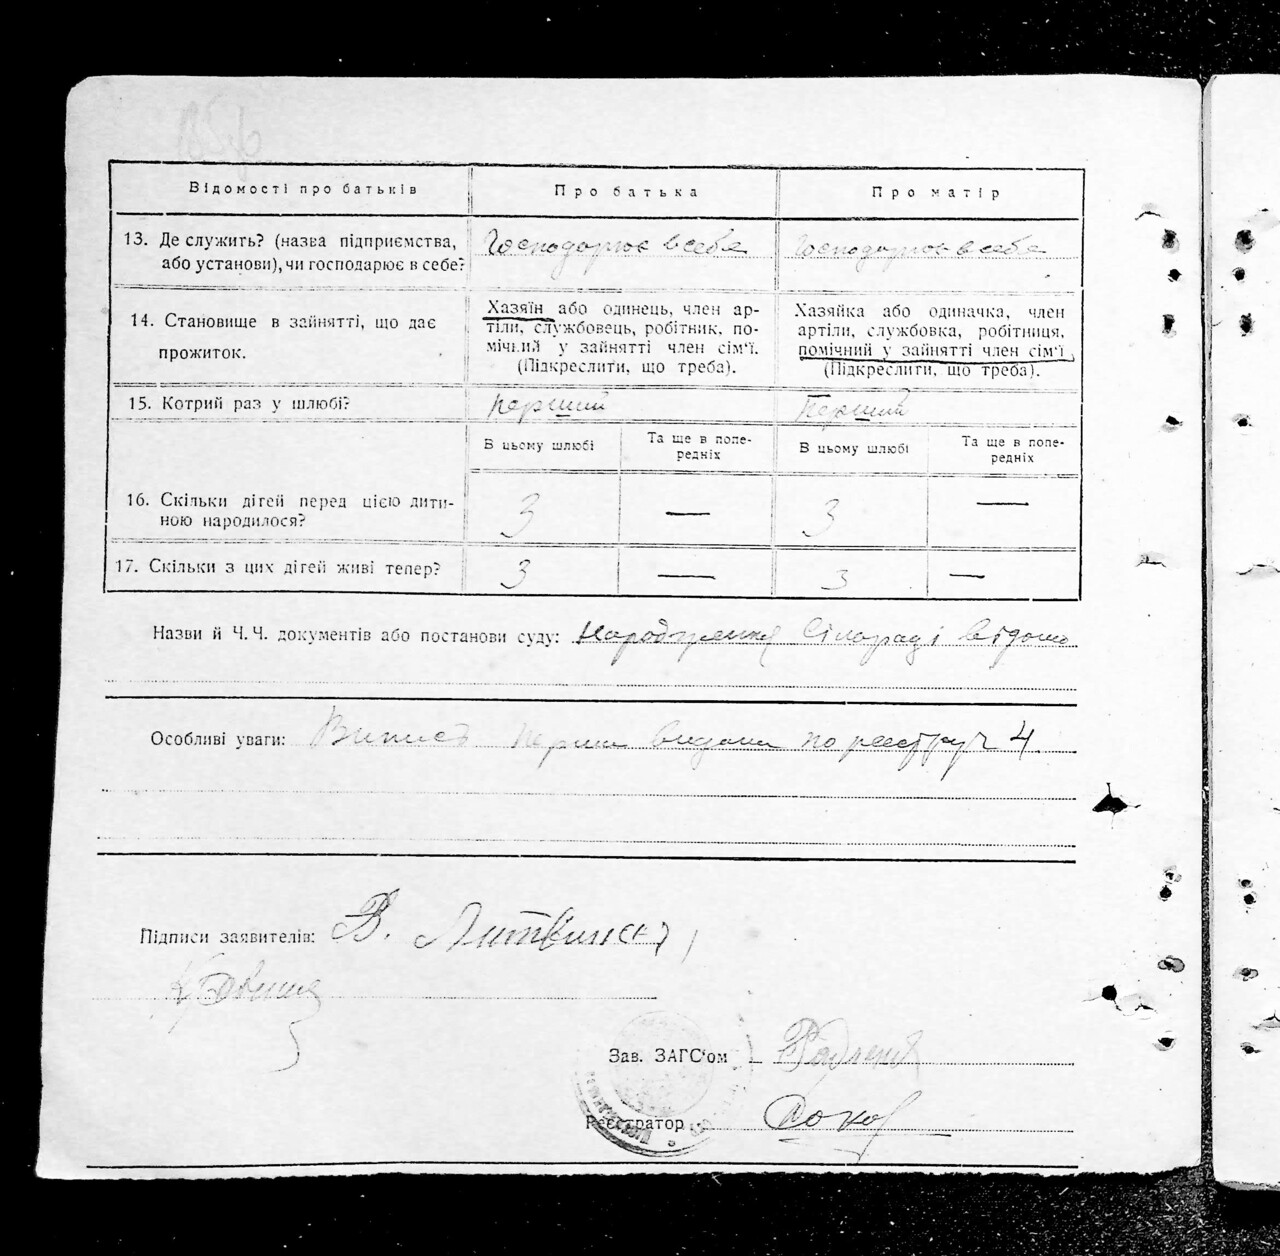 Відомості про батьків
Про батька
Про матір
13. Де служить? (назва підприємства,
або установи), чи господарює в себе?
Господарює в себе
Господарює в себе
14. Становище в зайнятті, що дає
прожиток.
Хазяїн або одинець, член ар-
тіли, службовець, робітник, по-
мічний у зайнятті член сім'ї.
(Підкреслити, що треба).
Хазяйка або одиначка, член
артіли, службовка, робітниця,
помічний у зайнятті член сім'ї
(Підкреслити, що треба).
15. Котрий раз у шлюбі?
перший
Перший
В цьому шлюбі
Та ще в попе-
редніх
В цьому шлюбі
Та ще в попе-
редніх
16. Скільки дітей перед цією дити-
ною народилося?
3
—
3
—
17. Скільки з цих дітей живі тепер?
3
—
3
—
Назви й Ч.Ч. документів або постанови суду: Народження Сільраді відомо
Особливі уваги: Випись перша видана по реєстру ч 4
Підписи заявителів: В. Литвин
Зав. ЗАГС'ом
Реєстратор